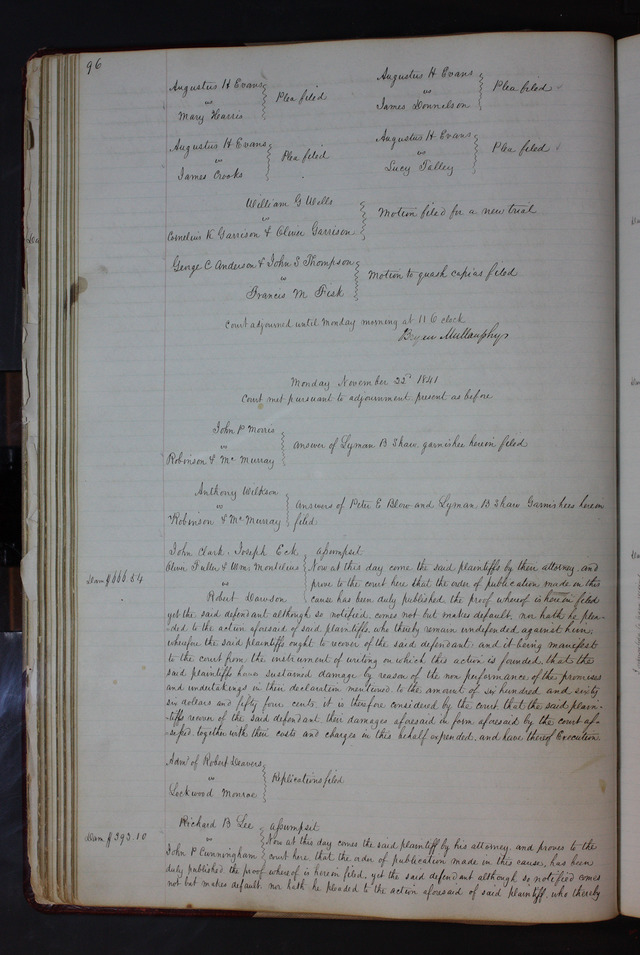 96
Augustus H Evans
vs
Mary Harris
Plea filed
Augustus H Evans
vs
James Donnelson
Plea filed
Augustus H Evans
vs
James Crooks
Plea filed
Augustus H Evans
vs
Lucy Talley
Plea filed
William G Wells
vs
Cornelius K Garrison & Oliver Garrison
Motion filed for a new trial
George C Anderson & John S Thompson
vs
Francis M Fisk
Motion to quash capias filed
Court adjourned until Monday morning at 11 O clock
Bryan Mullanphy
Monday November 22d 1841
Court met pursuant to adjournment present as before
John P Morris
vs
Robinson & Mc Murray
answer of Lyman B Shaw, garnishee herein filed
Anthony Wilkson
vs
Robinson & Mc Murray
answers of Peter E Blow and Lyman B Shaw Garnishees herein
filed
John Clark, Joseph Eck
Oliver Fuller & Wm Montelius
vs
Robert Dawson
Dam $666.54
assumpsit
Now at this day come the said plaintiffs by their attorney, and
prove to the court here that the order of publication made in this
cause has been duly published the proof whereof is herein filed
yet the said defendant although so notified, comes not but makes default, nor hath he plea-
ded to the action aforesaid of said plaintiffs, who thereby remain undefended against him,
wherefore the said plaintiffs ought to recover of the said defendant and it being manifest
to the court from the instrument of writing on which this action is founded, that the
said plaintiffs have sustained damage by reason of the non performance of the promises
and undertakings in their declaration mentioned to the amount of six hundred and sixty
six dollars and fifty four cents, it is therefore considered by the court that the said plain-
tiffs recover of the said defendant their damages aforesaid in form aforesaid by the court as-
sessed, together with their costs and charges in this behalf expended, and have thereof Execution
Adm' of Robert Deavers
vs
Lockwood Monroe
Replications filed
Richard B Lee
vs
John P Cunningham
Dam $393.10
assumpsit
Now at this day comes the said plaintiff by his attorney, and proves to the
court here, that the order of publication made in this cause, has been
duly published, the proof whereof is herein filed, yet the said defendant although so notified comes
not but makes default, nor hath he pleaded to the action aforesaid of said plaintiff, who thereby